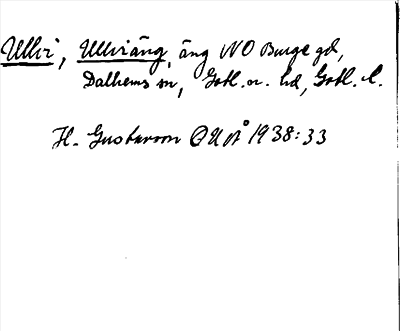 Ulvir, Ulviräng, äng NO Burge gd,
Dalhems sn, Gotl. n. hd, Gotl. l.
H. Gustavson OUÅ 1938:33